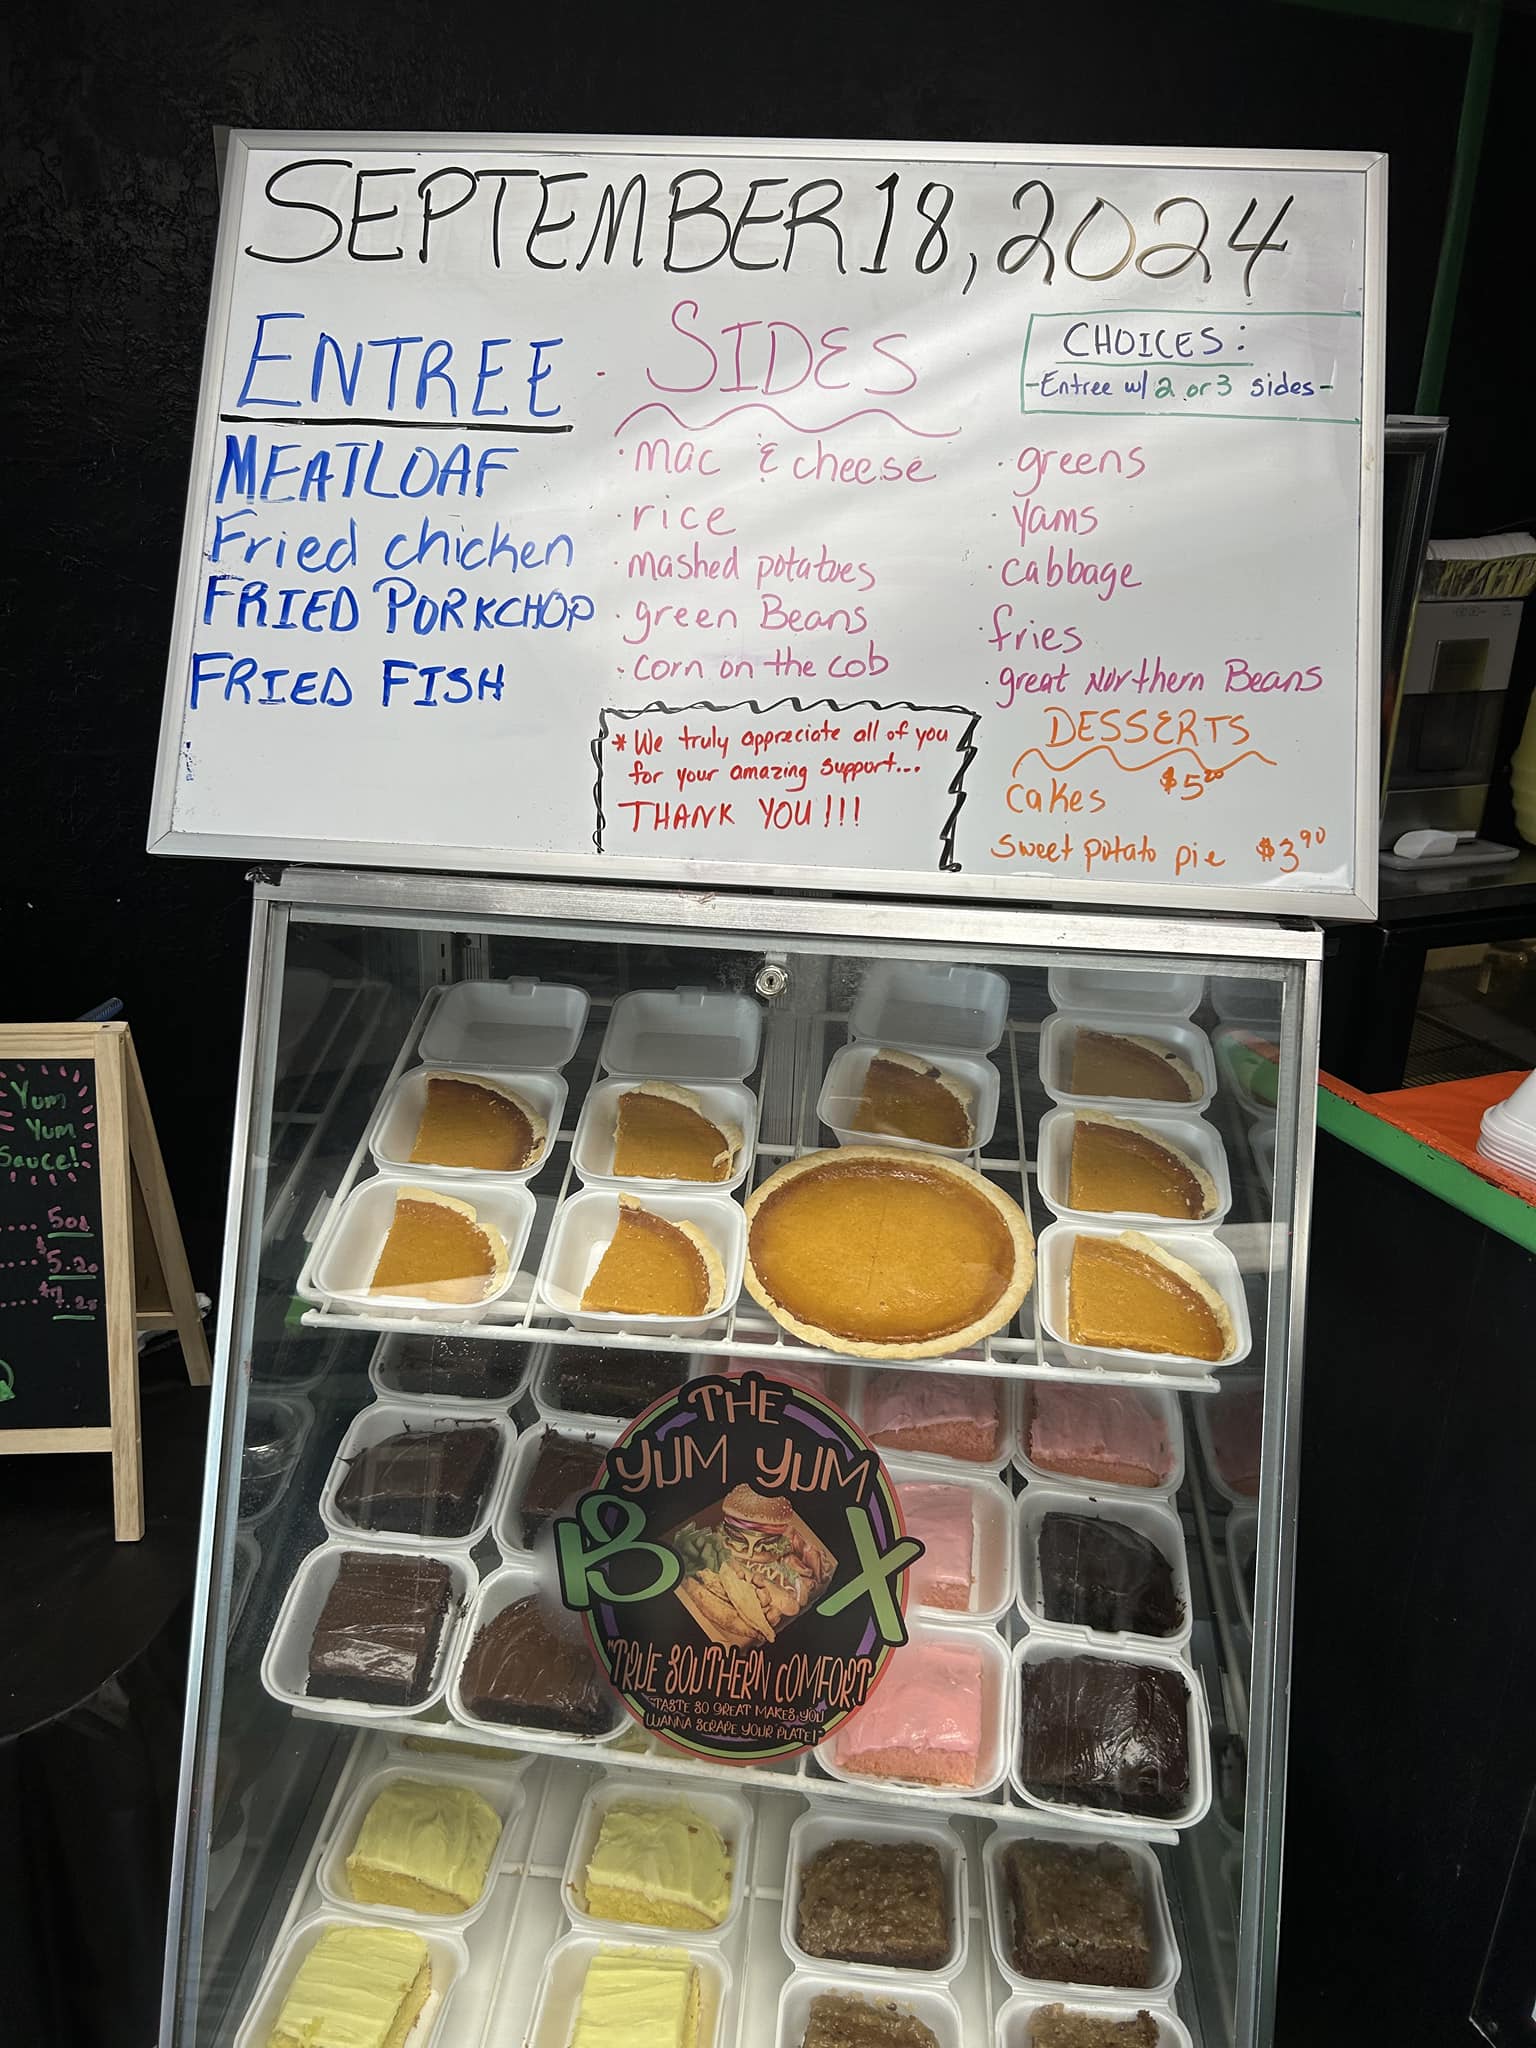 SEPTEMBER 18, 2024
ENTREE
MEATLOAF
Fried chicken
FRIED PORKCHOP
FRIED FISH
SIDES
· mac & cheese
· rice
· mashed potatoes
· green Beans
· corn on the cob
CHOICES:
-Entree w/ 2 or 3 sides-
· greens
· yams
· cabbage
· fries
· great Northern Beans
* We truly appreciate all of you
for your amazing support...
THANK YOU!!!
DESSERTS
cakes $5.20
sweet potato pie $3.90
Yum
Yum
Sauce!
.... 50¢
... $5.20
.... $7.25
THE
YUM YUM
BOX
"TRUE SOUTHERN COMFORT
"TASTE SO GREAT MAKES YOU
WANNA SCRAPE YOUR PLATE!"